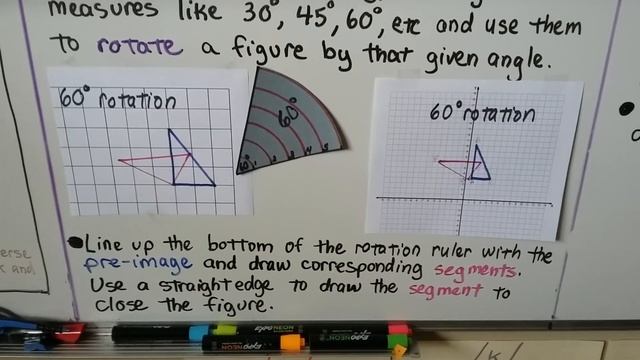 measures like 30°, 45°, 60°, etc and use them
to rotate a figure by that given angle.
60° rotation
60°
60° rotation
•Line up the bottom of the rotation ruler with the
pre-image and draw corresponding segments.
Use a straightedge to draw the segment to
close the figure.
erse
k and
EXPO
NEON
EXPO NEON